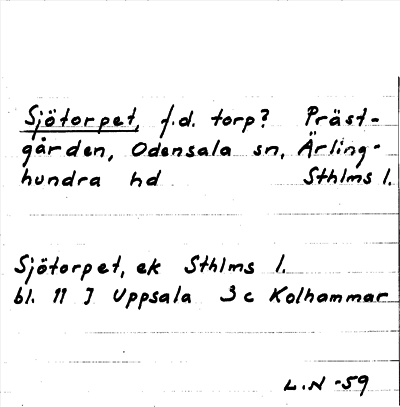 Sjötorpet, f.d. torp? Präst-
gården, Odensala sn, Ärling-
hundra hd Sthlms l.
Sjötorpet, ek Sthlms l.
bl. 11 I Uppsala 3c Kolhammar
L.N -59